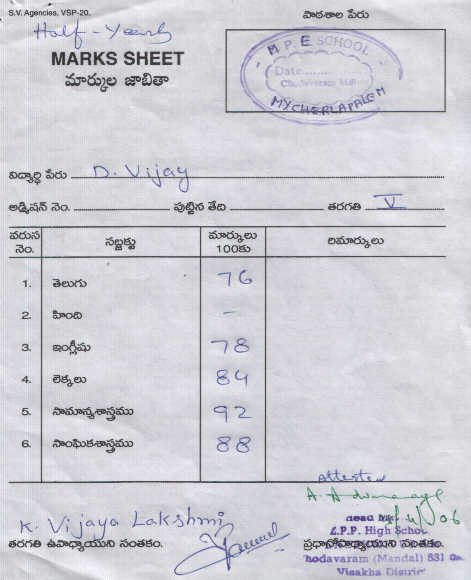 S.V. Agencies, VSP-20.
పాఠశాల పేరు
Half-Yearly
MARKS SHEET
మార్కుల జాబితా
M P E SCHOOL
Date........
MYCHERLAPALEM
విద్యార్థి పేరు D. Vijay
అడ్మిషన్ నెం. పుట్టిన తేది తరగతి V
వరుస నెం. సబ్జక్టు మార్కులు 100కు రిమార్కులు
1. తెలుగు 76
2. హింది -
3. ఇంగ్లీషు 78
4. లెక్కలు 84
5. సామాన్యశాస్త్రము 92
6. సాంఘికశాస్త్రము 88
Attested
K. Vijaya Lakshmi
Z.P.P. High School
తరగతి ఉపాధ్యాయుని సంతకం. ప్రధానోపాధ్యాయుని సంతకం.
hodavaram (Mandal) 531
Visakha District